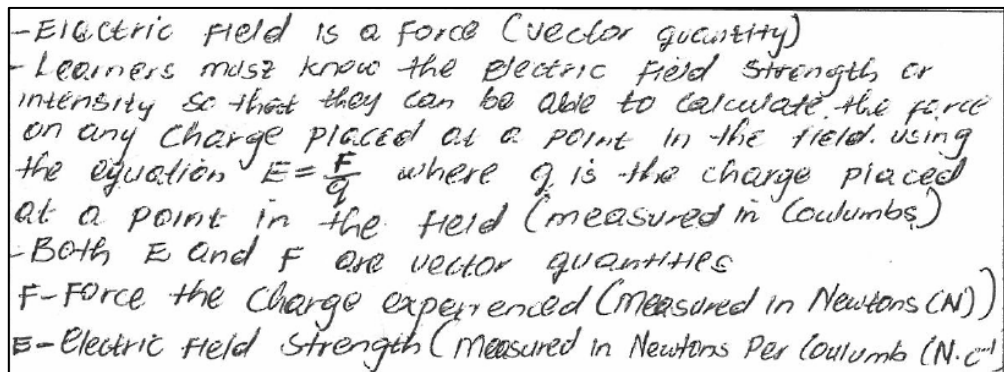 -Electric Field is a Force (vector quantity)
-Learners must know the electric field strength or
intensity so that they can be able to calculate the force
on any charge placed at a point in the field. using
the equation E = F/q where q is the charge placed
at a point in the field (measured in Coulumbs)
-Both E and F are vector quantities
F-Force the charge experienced (measured in Newtons (N))
E-Electric field strength (measured in Newtons Per Coulumb (N.c⁻¹